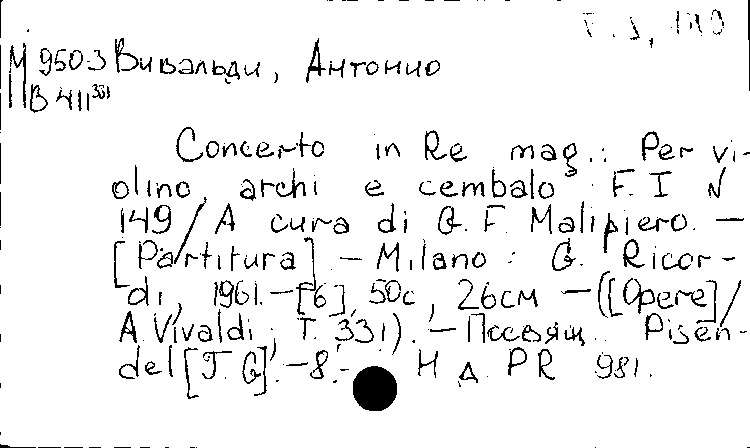 F. I, 149
М 950-3 Вивальди, Антонио
В 411 331
Concerto in Re mag.: Per vi-
olino, archi e cembalo F. I N
149 / A cura di G. F. Malipiero. —
[Partitura]. — Milano: G. Ricor-
di, 1961. — [6], 50с, 26см — ([Opere] /
A. Vivaldi; T. 331). — Посвящ. Pisen-
del [J. G.]. — 8. — Н. д. PR 981.